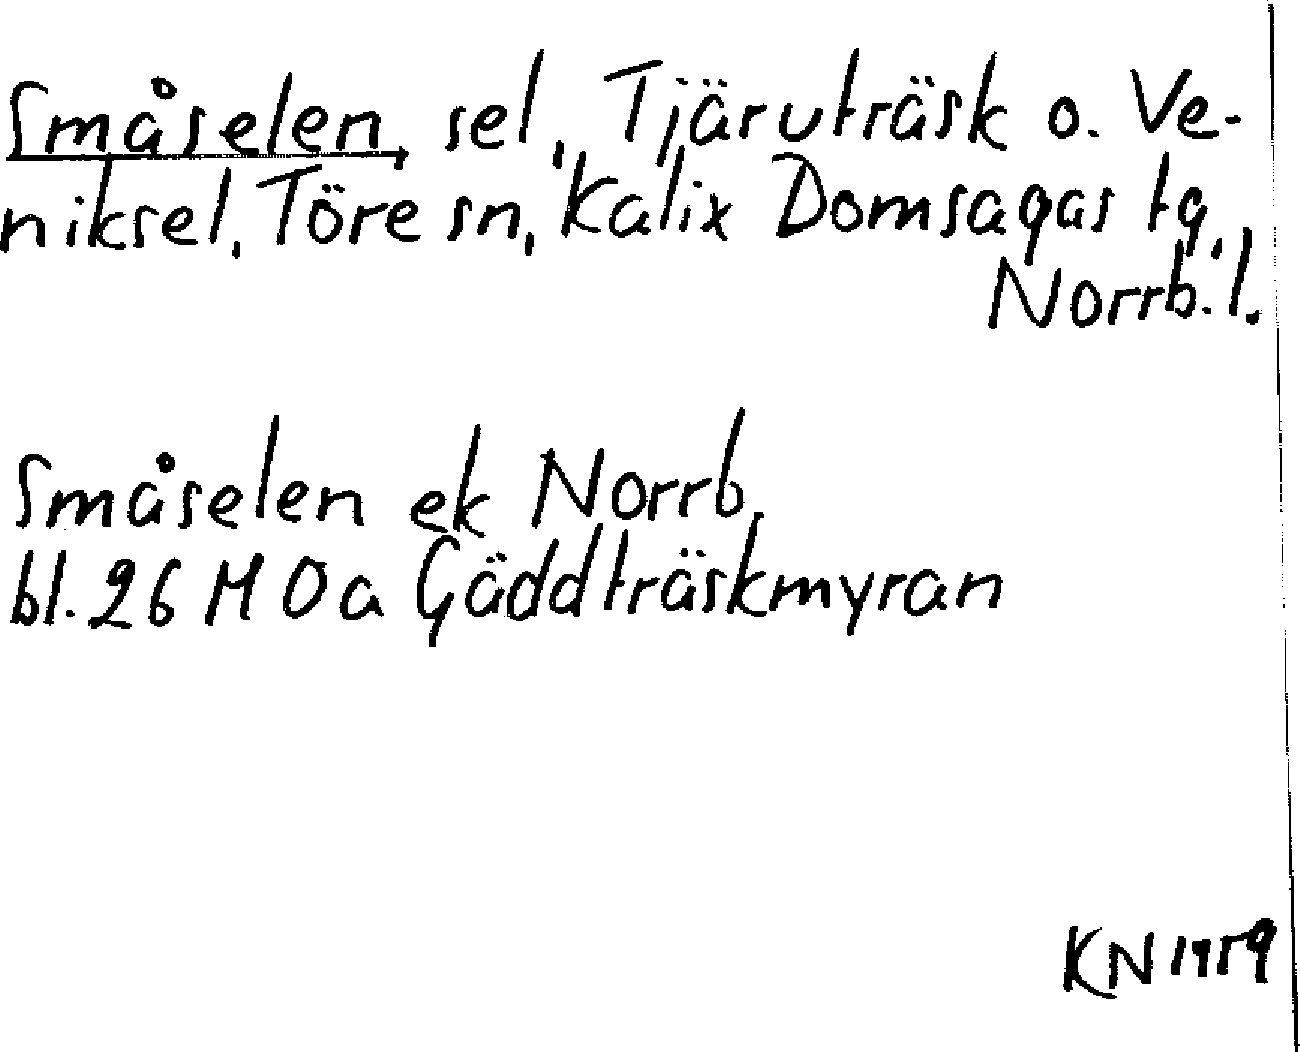 Småselen, sel, Tjäruträsk o. Ve-
niksel, Töre sn, Kalix Domsagas tg,
Norrb. l.
Småselen ek Norrb,
bl. 26 M 0 a Gäddträskmyran
KN 1959